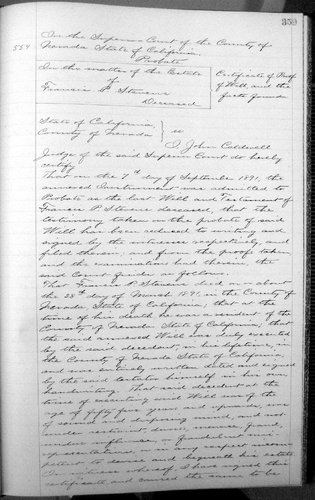 359
554
In the Superior Court of the County of
Nevada State of California.
Probate
In the matter of the Estate
of
Francis P. Stevens
Deceased
Certificate of Proof
of Will, and the
facts found
State of California
County of Nevada
ss
I, John Caldwell
Judge of the said Superior Court do hereby
certify
That on the 7th day of September 1891, the
annexed Instrument was admitted to
Probate as the last Will and Testament of
Francis P. Stevens deceased, that the
testimony taken on the probate of said
Will has been reduced to writing and
signed by the witnesses respectively, and
filed therein; and from the proofs taken
and the examination had therein, the
said Court finds as follows.
That Francis P. Stevens died, on or about
the 28th day of March 1891, in the County of
Nevada State of California, that at the
time of his death he was a resident of the
County of Nevada State of California, that
the said annexed Will was duly executed
by the said decedent, in his lifetime, in
the County of Nevada State of California,
and was entirely written dated and signed
by the said testator himself in his own
handwriting. That said decedent at the
time of executing said Will was of the
age of fifty five years, and upwards, was
of sound and disposing mind, and not
under restraint, duress, menace, fraud,
undue influence, or fraudulent mis-
representations, nor in any respect incom-
petent to devise and bequeath his estate
In witness whereof, I have signed this
certificate and caused the same to be